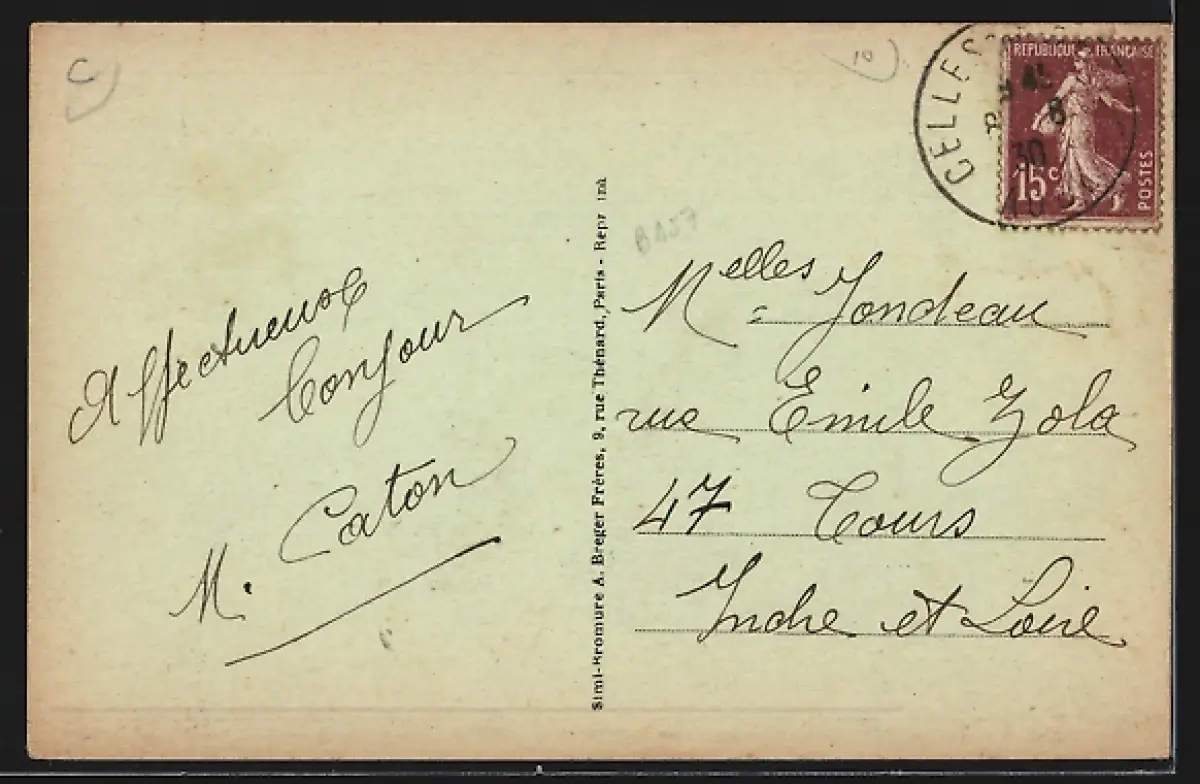 C
10
CELLES
REPUBLIQUE FRANCAISE
8 8
30
15c
POSTES
B157
Affectueux
bonjour
M. Caton
Simi-Bromure A. Breger Frères, 9, rue Thénard, Paris - Repr
Melles Jondeau
rue Emile Zola
47 Tours
Indre et Loire